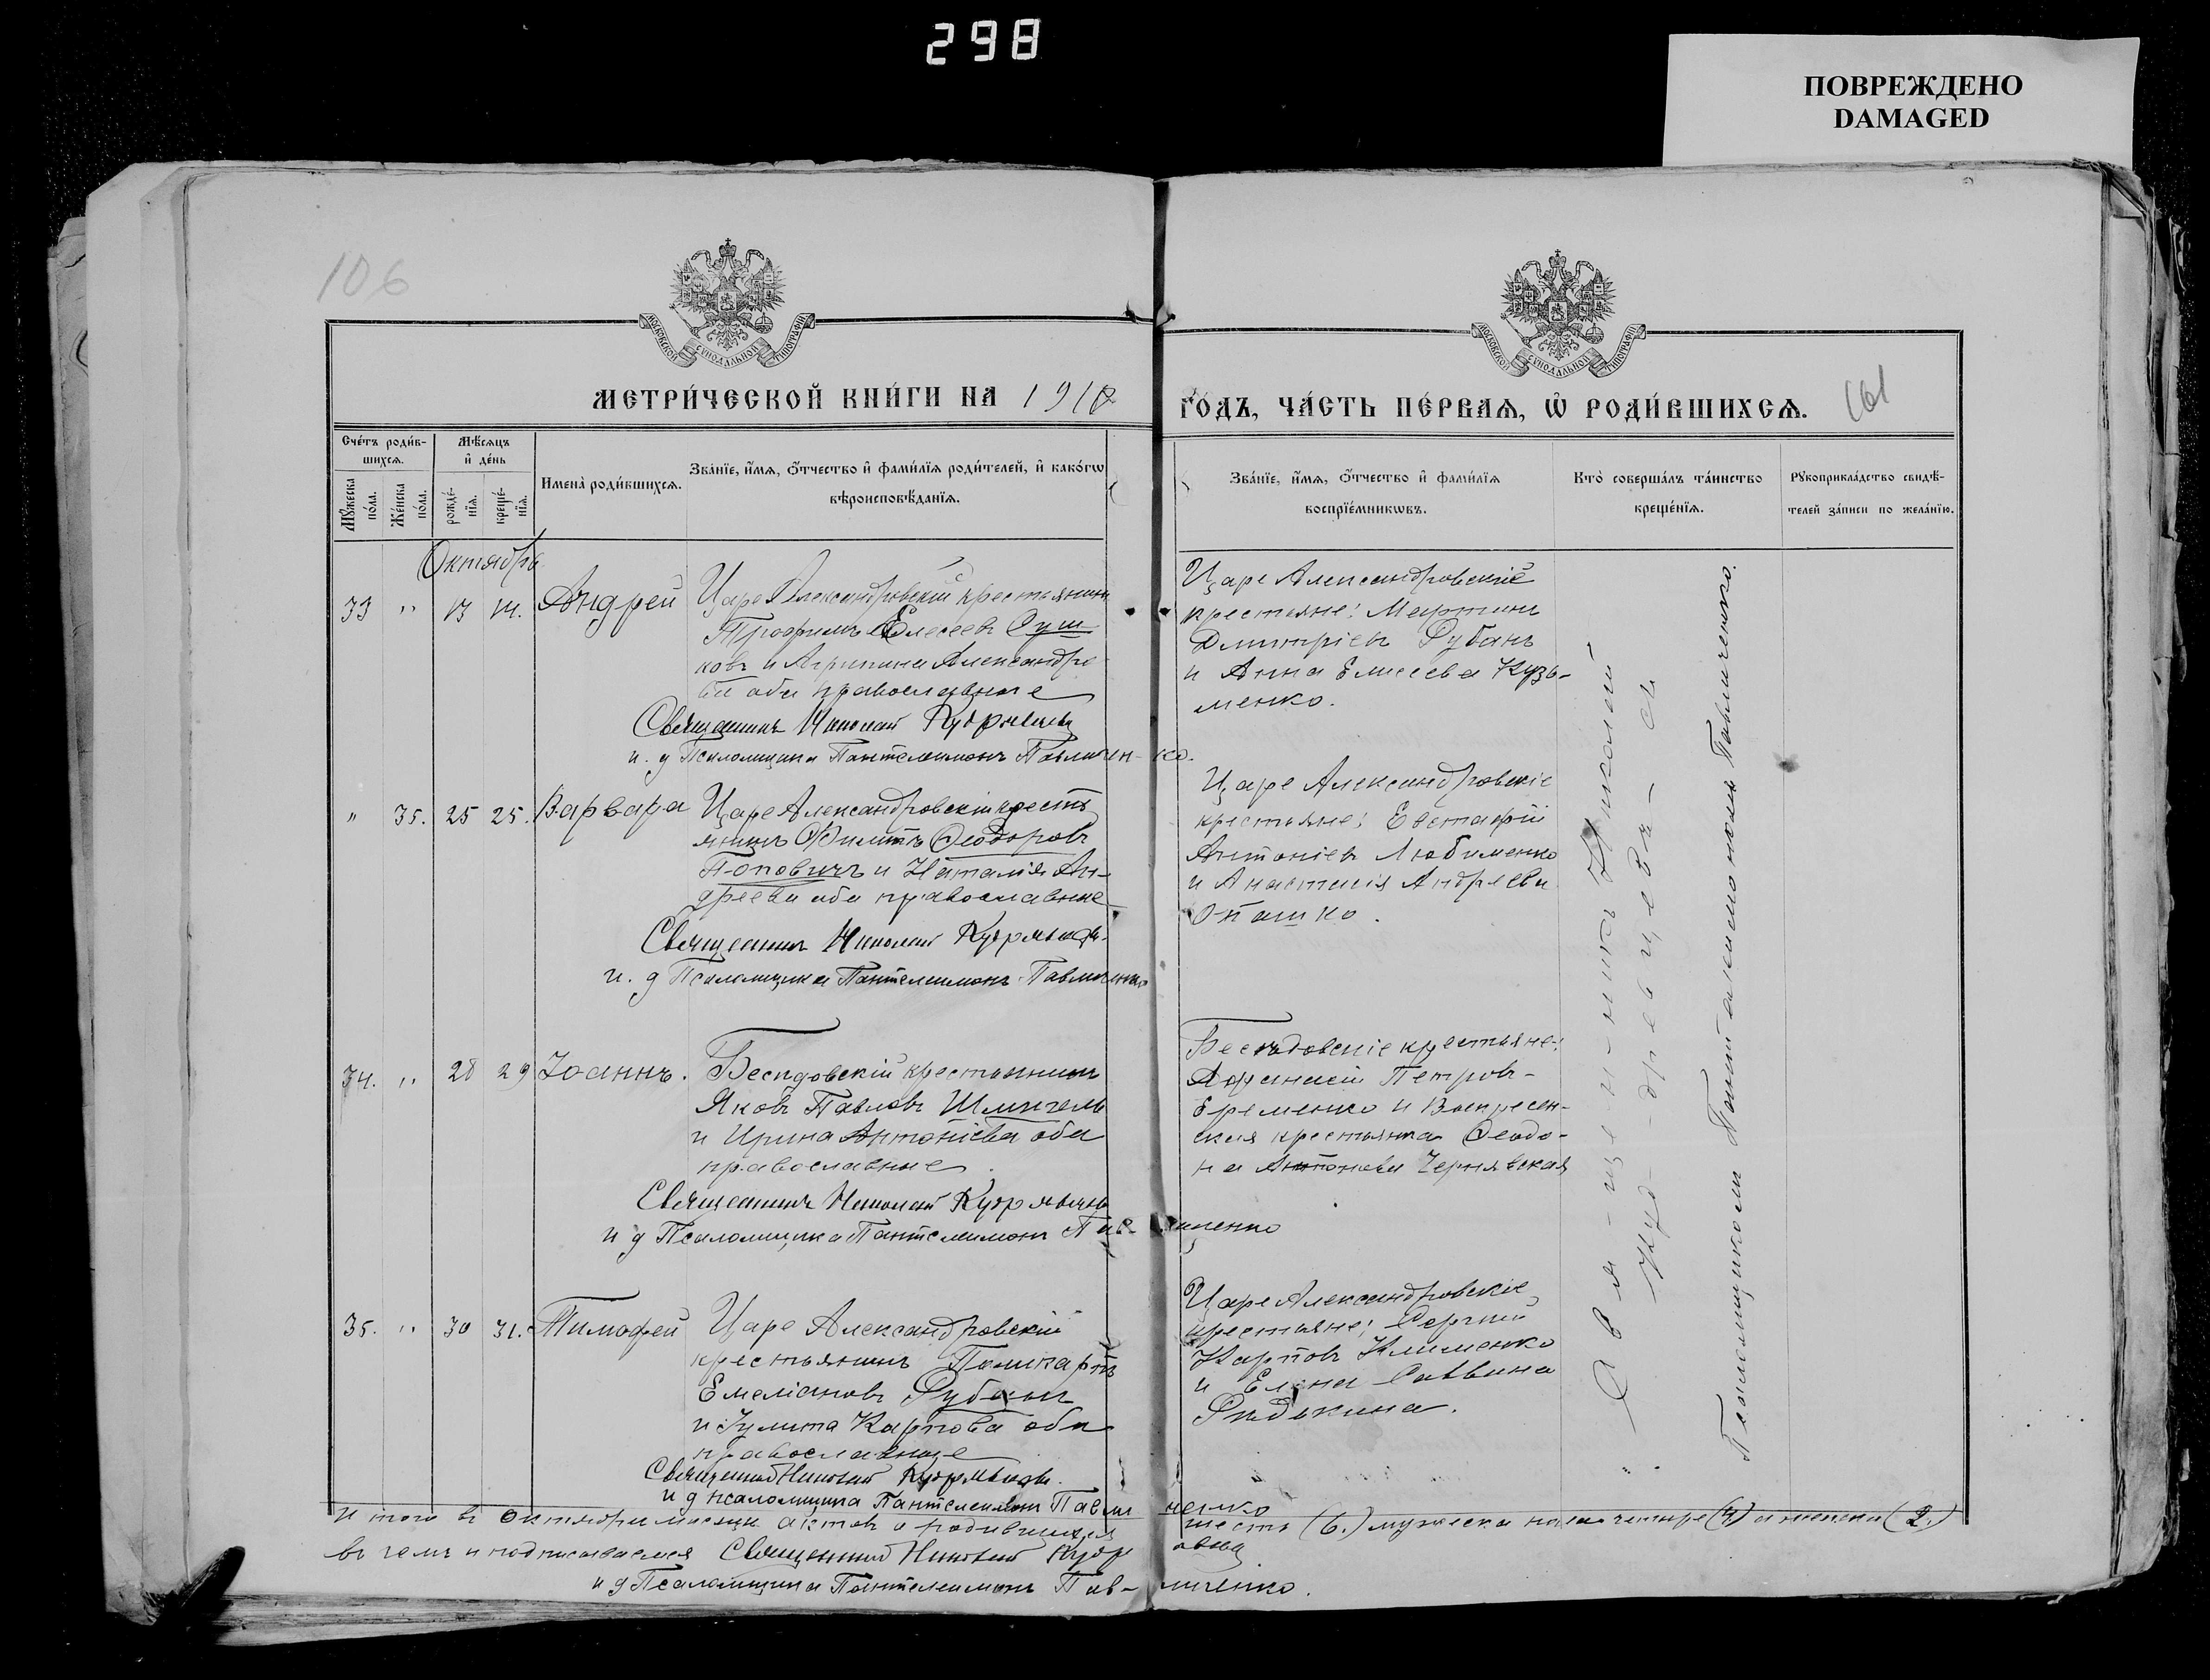 298
ПОВРЕЖДЕНО
DAMAGED
106
МОСКОВСКОЙ СУНОДАЛЬНОЙ ТИПОГРАФІИ
МОСКОВСКОЙ СУНОДАЛЬНОЙ ТИПОГРАФІИ
МЕТРИ́ЧЕСКОЙ КНИ́ГИ НА 1910
ГО́ДЪ, ЧА́СТЬ ПЕ́РВАѦ, Ѡ҆ РОДИ́ВШИХСѦ.
161
Сче́тъ роди́в-
шихсѧ.
Мꙋ́жеска по́ла.
Же́нска по́ла.
Мѣ́сѧцъ и҆ де́нь
рожде́-
нїѧ.
креще́-
нїѧ.
Имена̀ роди́вшихсѧ.
Зва́нїе, и҆́мѧ, ѻ҆́тчество и҆ фами́лїѧ роди́телей, и҆ како́гѡ
вѣроисповѣ́данїѧ.
Зва́нїе, и҆́мѧ, ѻ҆́тчество и҆ фами́лїѧ
воспрїе́мникѡвъ.
Кто̀ соверша́лъ та́инство
креще́нїѧ.
Рꙋкоприкла́дство свидѣ́-
телей за́писи по жела́нїю.
Октября
33 " 13 14. Андрей
Царе Александровскій крестьянинъ
Трофимъ Елесеевъ Суш
ковъ и Агрипина Александро
ва оба православные
Священникъ Николай Кудрявцевъ
и. д Псаломщика Пантелеимонъ Павличен-ко.
Царе Александровскіе
крестьяне: Мартинъ
Дмитріевъ Рубанъ
и Анна Елисеева Кузь-
менко.
" 35. 25 25. Варвара
Царе Александровскій кресть
янинъ Филиппъ Ѳеодоровъ
Поповичъ и Наталія Ан-
дреева оба православные
Священникъ Николай Кудрявцевъ
и. д Псаломщика Пантелеимонъ Павличенко
Царе Александровскіе
крестьяне: Евстафій
Антоніевъ Любименко
и Анастасія Андреева
Опашко.
34. " 28 29 Іоаннъ.
Бесѣдовскій крестьянинъ
Яковъ Павловъ Шмигель
и Ирина Антоніева оба
православные
Священникъ Николай Кудрявцевъ
и д Псаломщика Пантелеимонъ Павличенко
Бесѣдовскіе крестьяне:
Афанасій Петровъ-
Еременко и Воскресен-
ская крестьянка Ѳеодо-
на Антонова Чернявская
35. " 30 31. Тимофей
Царе Александровскій
крестьянинъ Поликарпъ
Емеліановъ Рубанъ
и Іулита Карпова оба
православные
Священникъ Николай Кудрявцевъ.
и д псаломщика Пантелеимонъ Павличенко
Царе Александровскіе
крестьяне: Сергій
Карповъ Клименко
и Елена Саввина
Рядькина.
Свя-щен-никъ Николай
Куд-рявцевъ-съ
Псаломщикомъ Пантелеимономъ Павличенко.
Итого въ Октябрѣ месяцѣ актовъ о родившихся шесть (6.) мужеска пола четыре (4) и женска (2.)
въ чемъ и подписываемся Священникъ Николай Кудрявцевъ
и д Псаломщика Пантелеимонъ Пав-личенко.